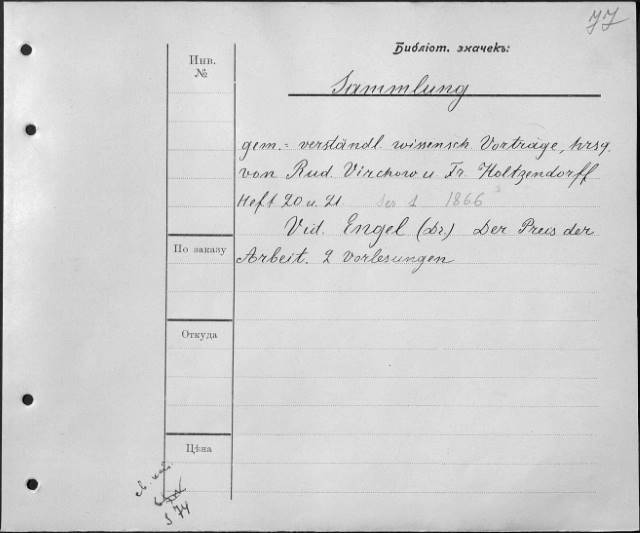 77
Библіот. значекъ:
Инв.
№
Sammlung
gem.= verständl. wissensch. Vorträge, hrsg.
von Rud. Virchow u. Fr. Holtzendorff
Heft 20 u. 21 Ser 1 1866
Vid. Engel (Dr.) Der Preis der
Arbeit. 2 Vorlesungen
По заказу
Откуда
Цѣна